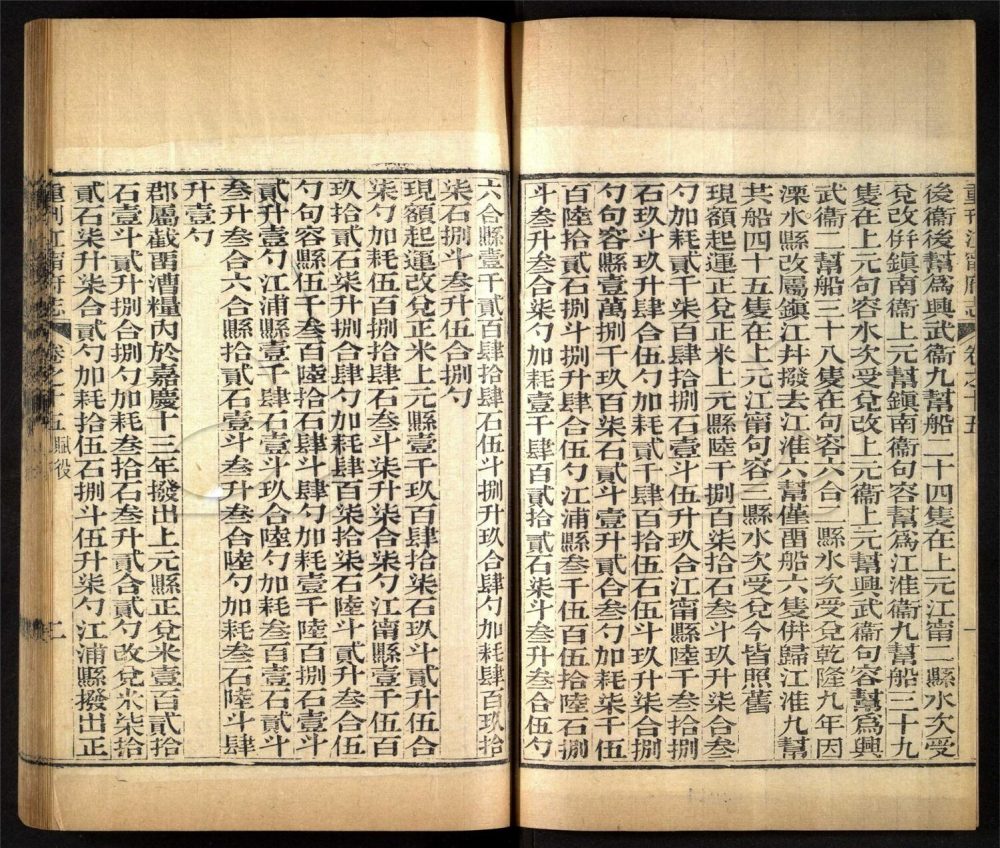 重刊江甯府志 卷之十五 一
後衞後幫爲興武衞九幫船二十四隻在上元江甯二縣水次受
兌改併鎭南衞上元幫鎭南衞句容幫爲江淮衞九幫船三十九
隻在上元句容水次受兌改上元衞上元幫興武衞句容幫爲興
武衞二幫船三十八隻在句容六合二縣水次受兌乾隆九年因
溧水縣改屬鎭江幷撥去江淮六幫僅畱船六隻併歸江淮九幫
共船四十五隻在上元江甯句容三縣水次受兌今皆照舊
現額起運正兌正米上元縣陸千捌百柒拾石叁斗玖升柒合叁
勺加耗貳千柒百肆拾捌石壹斗伍升玖合江甯縣陸千叁拾捌
石玖斗玖升肆合伍勺加耗貳千肆百拾伍石伍斗玖升柒合捌
勺句容縣壹萬捌千玖百柒石貳斗壹升貳合叁勺加耗柒千伍
百陸拾貳石捌斗捌升肆合伍勺江浦縣叁千伍百伍拾陸石捌
斗叁升叁合柒勺加耗壹千肆百貳拾貳石柒斗叁升叁合伍勺
六合縣壹千貳百肆拾肆石伍斗捌升玖合肆勺加耗肆百玖拾
柒石捌斗叁升伍合捌勺
現額起運改兌正米上元縣壹千玖百肆拾柒石玖斗貳升伍合
柒勺加耗伍百捌拾肆石叁斗柒升柒合柒勺江甯縣壹千伍百
玖拾貳石柒升捌合肆勺加耗肆百柒拾柒石陸斗貳升叁合伍
勺句容縣伍千叁百陸拾石肆斗肆勺加耗壹千陸百捌石壹斗
貳升壹勺江浦縣壹千肆石壹斗玖合陸勺加耗叁百壹石貳斗
叁升叁合六合縣拾貳石壹斗叁升叁合陸勺加耗叁石陸斗肆
升壹勺
郡屬截畱漕糧內於嘉慶十三年撥出上元縣正兌米壹百貳拾
石壹斗貳升捌合捌勺加耗叁拾石叁升貳合貳勺改兌米柒拾
貳石柒升柒合貳勺加耗拾伍石捌斗伍升柒勺江浦縣撥出正
重刊江甯府志 卷之十五 賦役 二